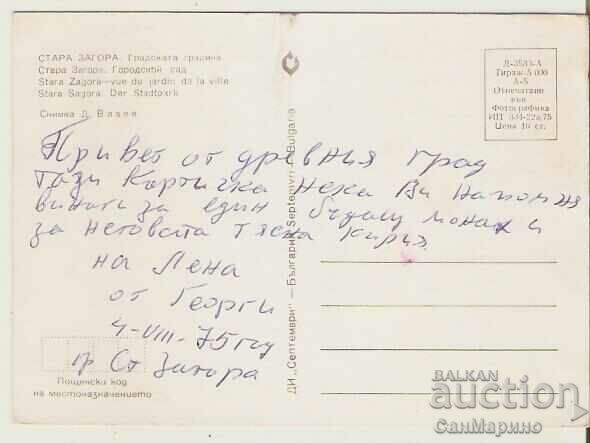 СТАРА ЗАГОРА. Градската градина
Стара Загора. Городской сад
Stara Zagora—vue du jardin de la ville
Stara Sagora. Der Stadtpark
Снимка Д. Владев
Д-3513-А
Тираж 5 000
А-5
Отпечатано
във
Фотографика
Цена 16 ст.
Привет от древния град
Тази картичка нека Ви напомня
винаги за един бъдащ монах и
за неговата тясна килия
на Лена
от Георги
4-VIII-75 год
гр Ст Загора
Пощенски код
на местоназначението
ДИ „Септември" — България Septemvri — Bulgaria
BALKAN
auction
СанМарино